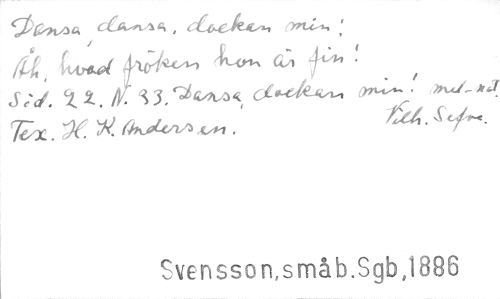 Dansa, dansa, dockan min!
Åh, hvad fröken hon är fin!
Sid. 22. N. 33. Dansa, dockan min! mel-not.
Tex. H. K. Andersen. Vilh. Sefve.
Svensson,småb.Sgb,1886